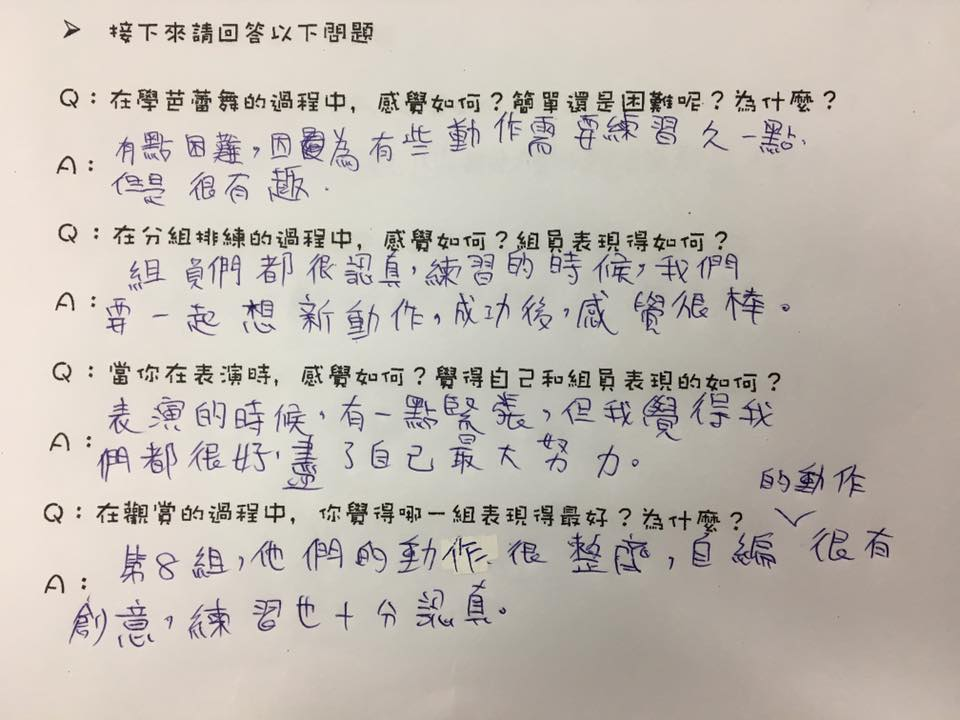 ➤ 接下來請回答以下問題
Q：在學芭蕾舞的過程中，感覺如何？簡單還是困難呢？為什麼？
有點困難，因為有些動作需要練習久一點.
A：
但是很有趣.
Q：在分組排練的過程中，感覺如何？組員表現得如何？
組員們都很認真，練習的時候，我們
A：要一起想新動作，成功後，感覺很棒。
Q：當你在表演時，感覺如何？覺得自己和組員表現的如何？
表演的時候，有一點緊張，但我覺得我
A：們都很好，盡了自己最大努力。
的動作
Q：在觀賞的過程中，你覺得哪一組表現得最好？為什麼？
第8組，他們的動作很整齊，自編 很有
A：
創意，練習也十分認真。